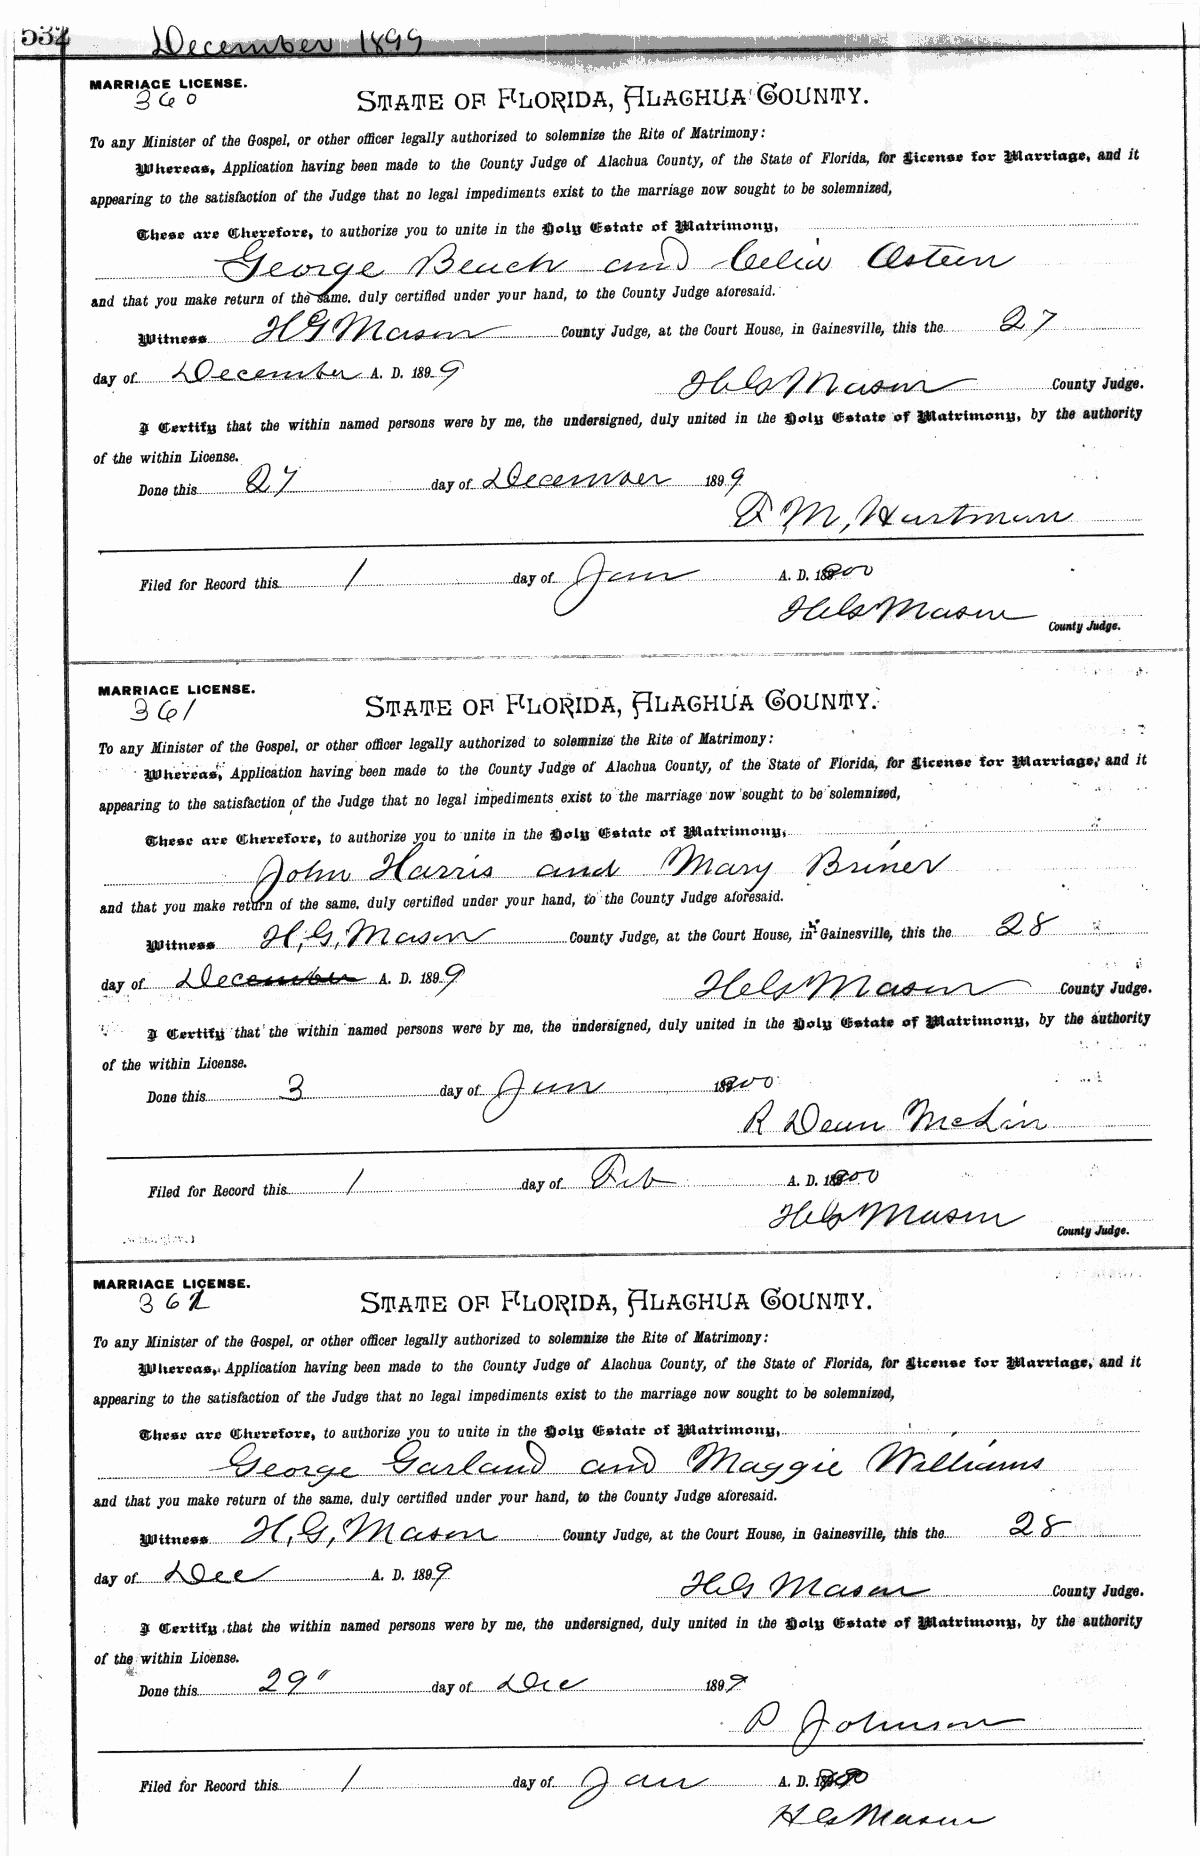 532 December 1899
MARRIAGE LICENSE.
360
STATE OF FLORIDA, ALACHUA COUNTY.
To any Minister of the Gospel, or other officer legally authorized to solemnize the Rite of Matrimony:
Whereas, Application having been made to the County Judge of Alachua County, of the State of Florida, for License for Marriage, and it
appearing to the satisfaction of the Judge that no legal impediments exist to the marriage now sought to be solemnized,
These are Therefore, to authorize you to unite in the Holy Estate of Matrimony,
George Beach and Celia Osteen
and that you make return of the same, duly certified under your hand, to the County Judge aforesaid.
Witness H G Mason County Judge, at the Court House, in Gainesville, this the 27
day of December A. D. 1899
H G Mason County Judge.
I Certify that the within named persons were by me, the undersigned, duly united in the Holy Estate of Matrimony, by the authority
of the within License.
Done this 27 day of December 1899
F. M, Hartman
Filed for Record this 1 day of Jan A. D. 1900
H G Mason
County Judge.
MARRIAGE LICENSE.
361
STATE OF FLORIDA, ALACHUA COUNTY.
To any Minister of the Gospel, or other officer legally authorized to solemnize the Rite of Matrimony:
Whereas, Application having been made to the County Judge of Alachua County, of the State of Florida, for License for Marriage, and it
appearing to the satisfaction of the Judge that no legal impediments exist to the marriage now sought to be solemnized,
These are Therefore, to authorize you to unite in the Holy Estate of Matrimony,
John Harris and Mary Briner
and that you make return of the same, duly certified under your hand, to the County Judge aforesaid.
Witness H, G, Mason County Judge, at the Court House, in Gainesville, this the 28
day of December A. D. 1899
H G Mason County Judge.
I Certify that the within named persons were by me, the undersigned, duly united in the Holy Estate of Matrimony, by the authority
of the within License.
Done this 3 day of Jan 1900
R Dean McLin
Filed for Record this 1 day of Feb A. D. 1900
H G Mason
County Judge.
MARRIAGE LICENSE.
362
STATE OF FLORIDA, ALACHUA COUNTY.
To any Minister of the Gospel, or other officer legally authorized to solemnize the Rite of Matrimony:
Whereas, Application having been made to the County Judge of Alachua County, of the State of Florida, for License for Marriage, and it
appearing to the satisfaction of the Judge that no legal impediments exist to the marriage now sought to be solemnized,
These are Therefore, to authorize you to unite in the Holy Estate of Matrimony,
George Garland and Maggie Williams
and that you make return of the same, duly certified under your hand, to the County Judge aforesaid.
Witness H, G, Mason County Judge, at the Court House, in Gainesville, this the 28
day of Dec A. D. 1899
H G Mason County Judge.
I Certify that the within named persons were by me, the undersigned, duly united in the Holy Estate of Matrimony, by the authority
of the within License.
Done this 29" day of Dec 1899
P Johnson
Filed for Record this 1 day of Jan A. D. 1900
H G Mason